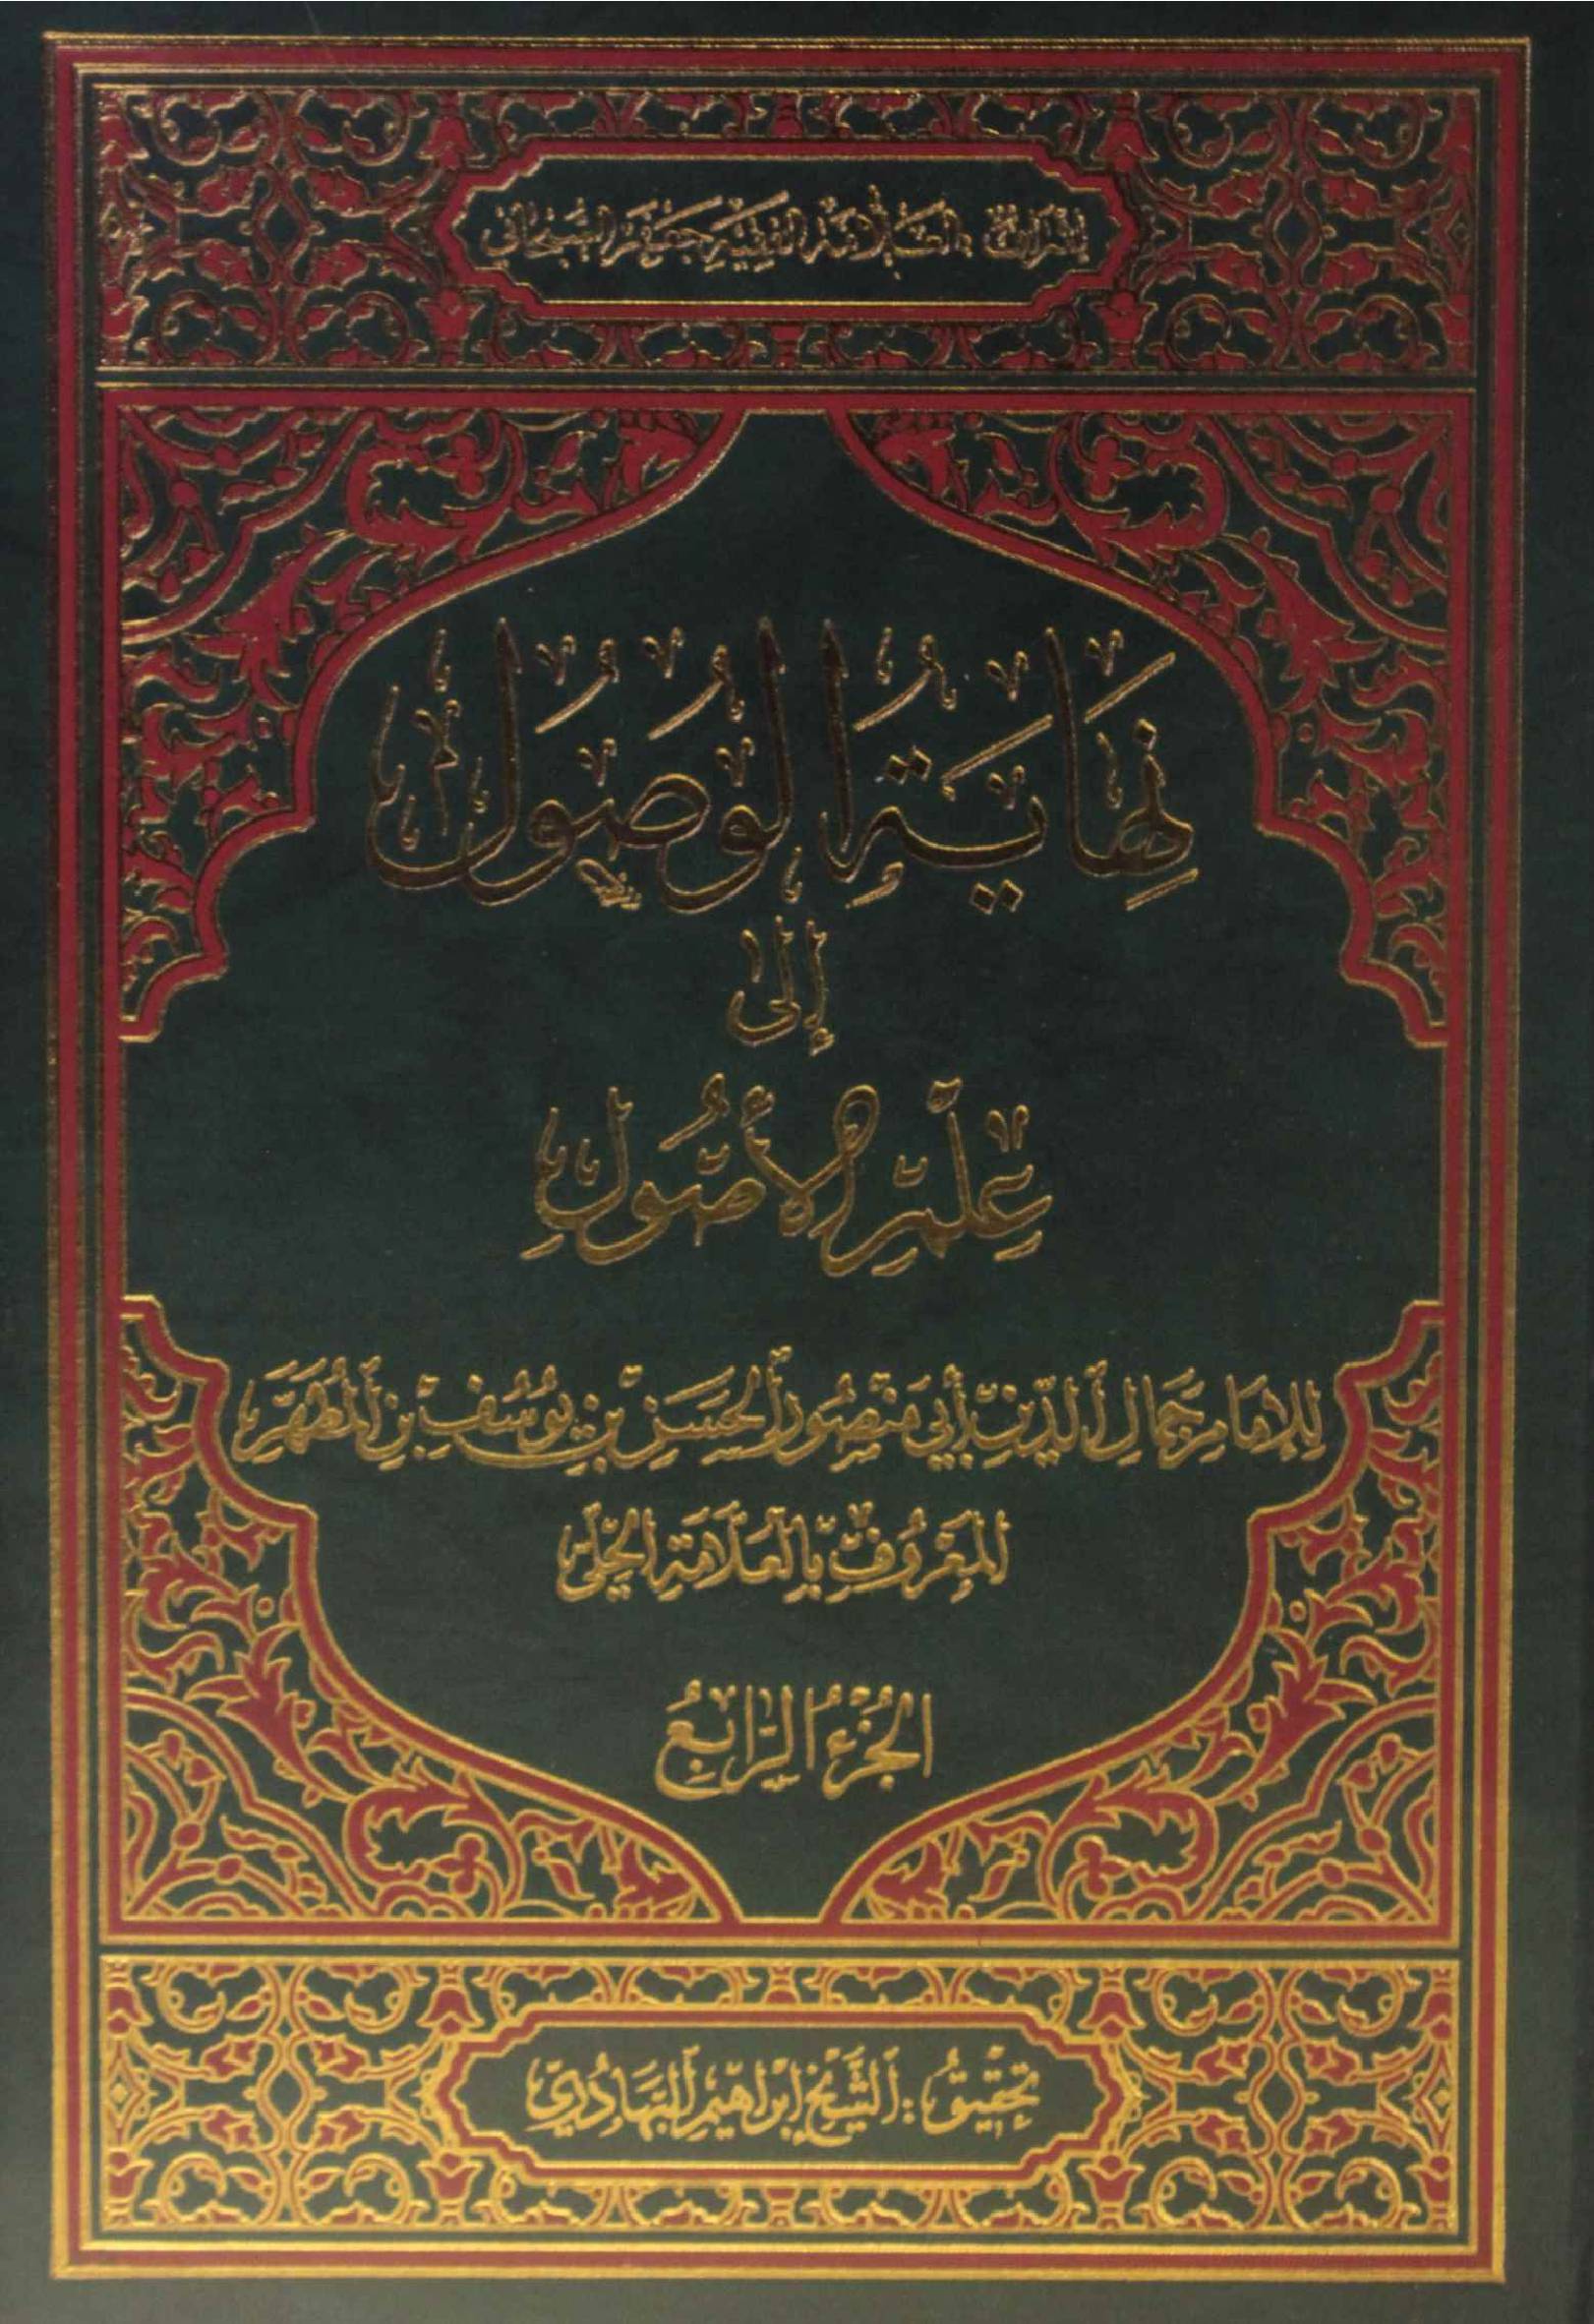 إشراف: العلامة الفقيه جعفر السبحاني
نهاية الوصول
إلى
علم الأصول
للإمام جمال الدين أبي منصور الحسن بن يوسف بن المطهر
المعروف بالعلامة الحلي
الجزء الرابع
تحقيق: الشيخ إبراهيم البهادري